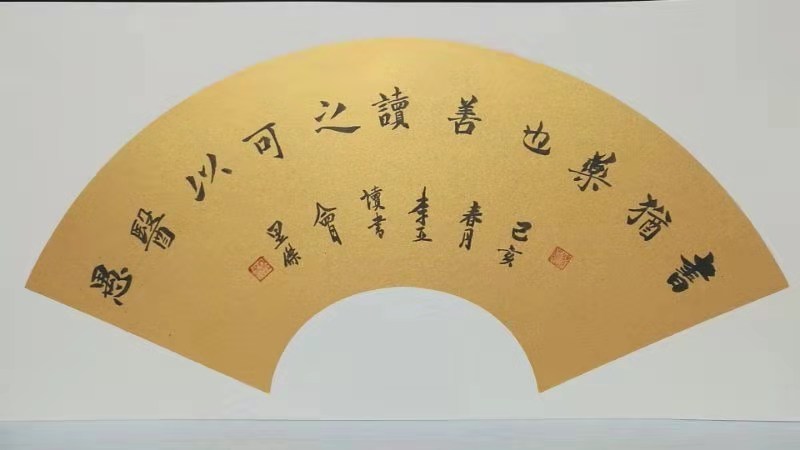 書猶藥也善讀之可以醫愚
己亥
春月
李亚
讀書
會